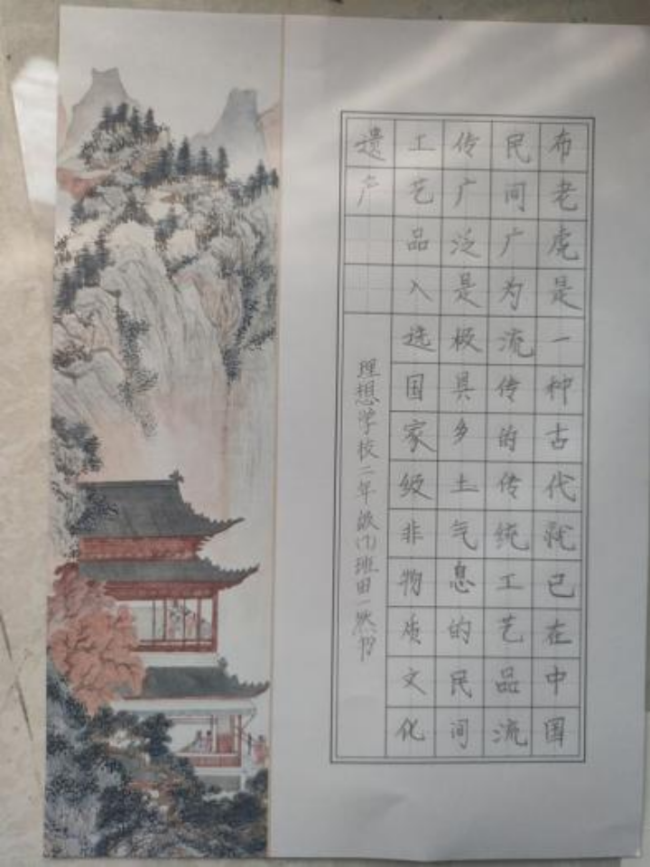 布老虎是一种古代就已在中国
民间广为流传的传统工艺品流
传广泛是极具乡土气息的民间
工艺品入选国家级非物质文化
遗产
理想学校二年级(7)班田一然书